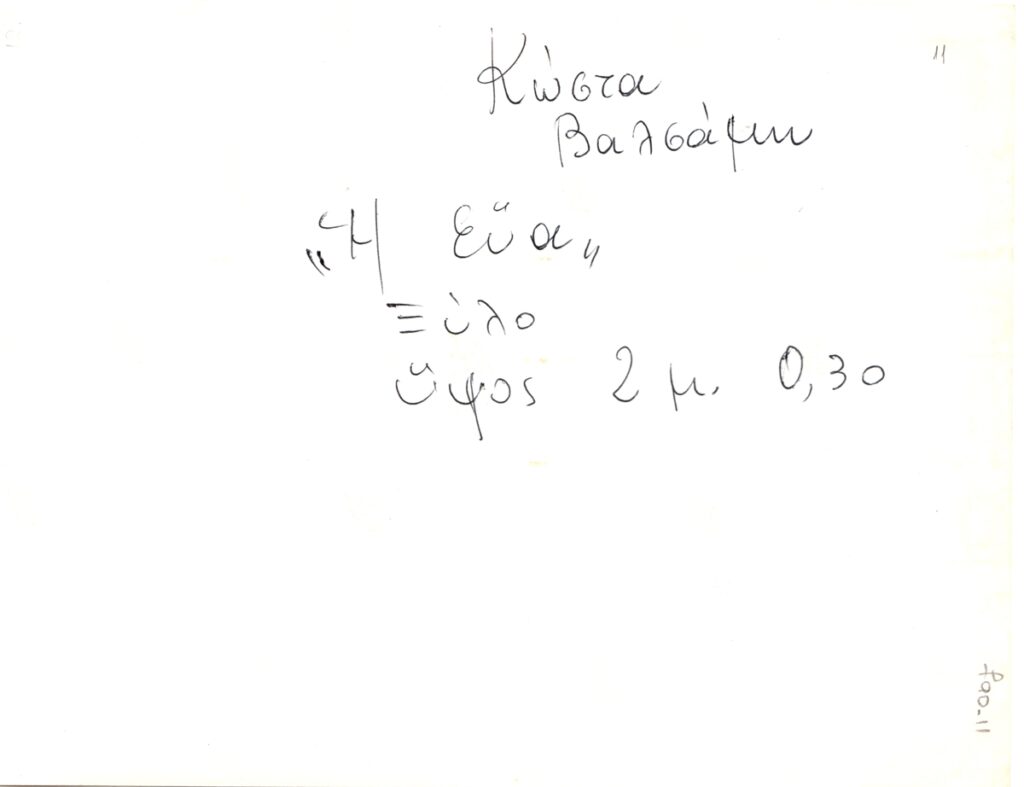 11
Κώστα
Βαλσάμη
„Ἡ Εὔα„
Ξύλο
ὕψος 2 μ. 0,30
f90.11